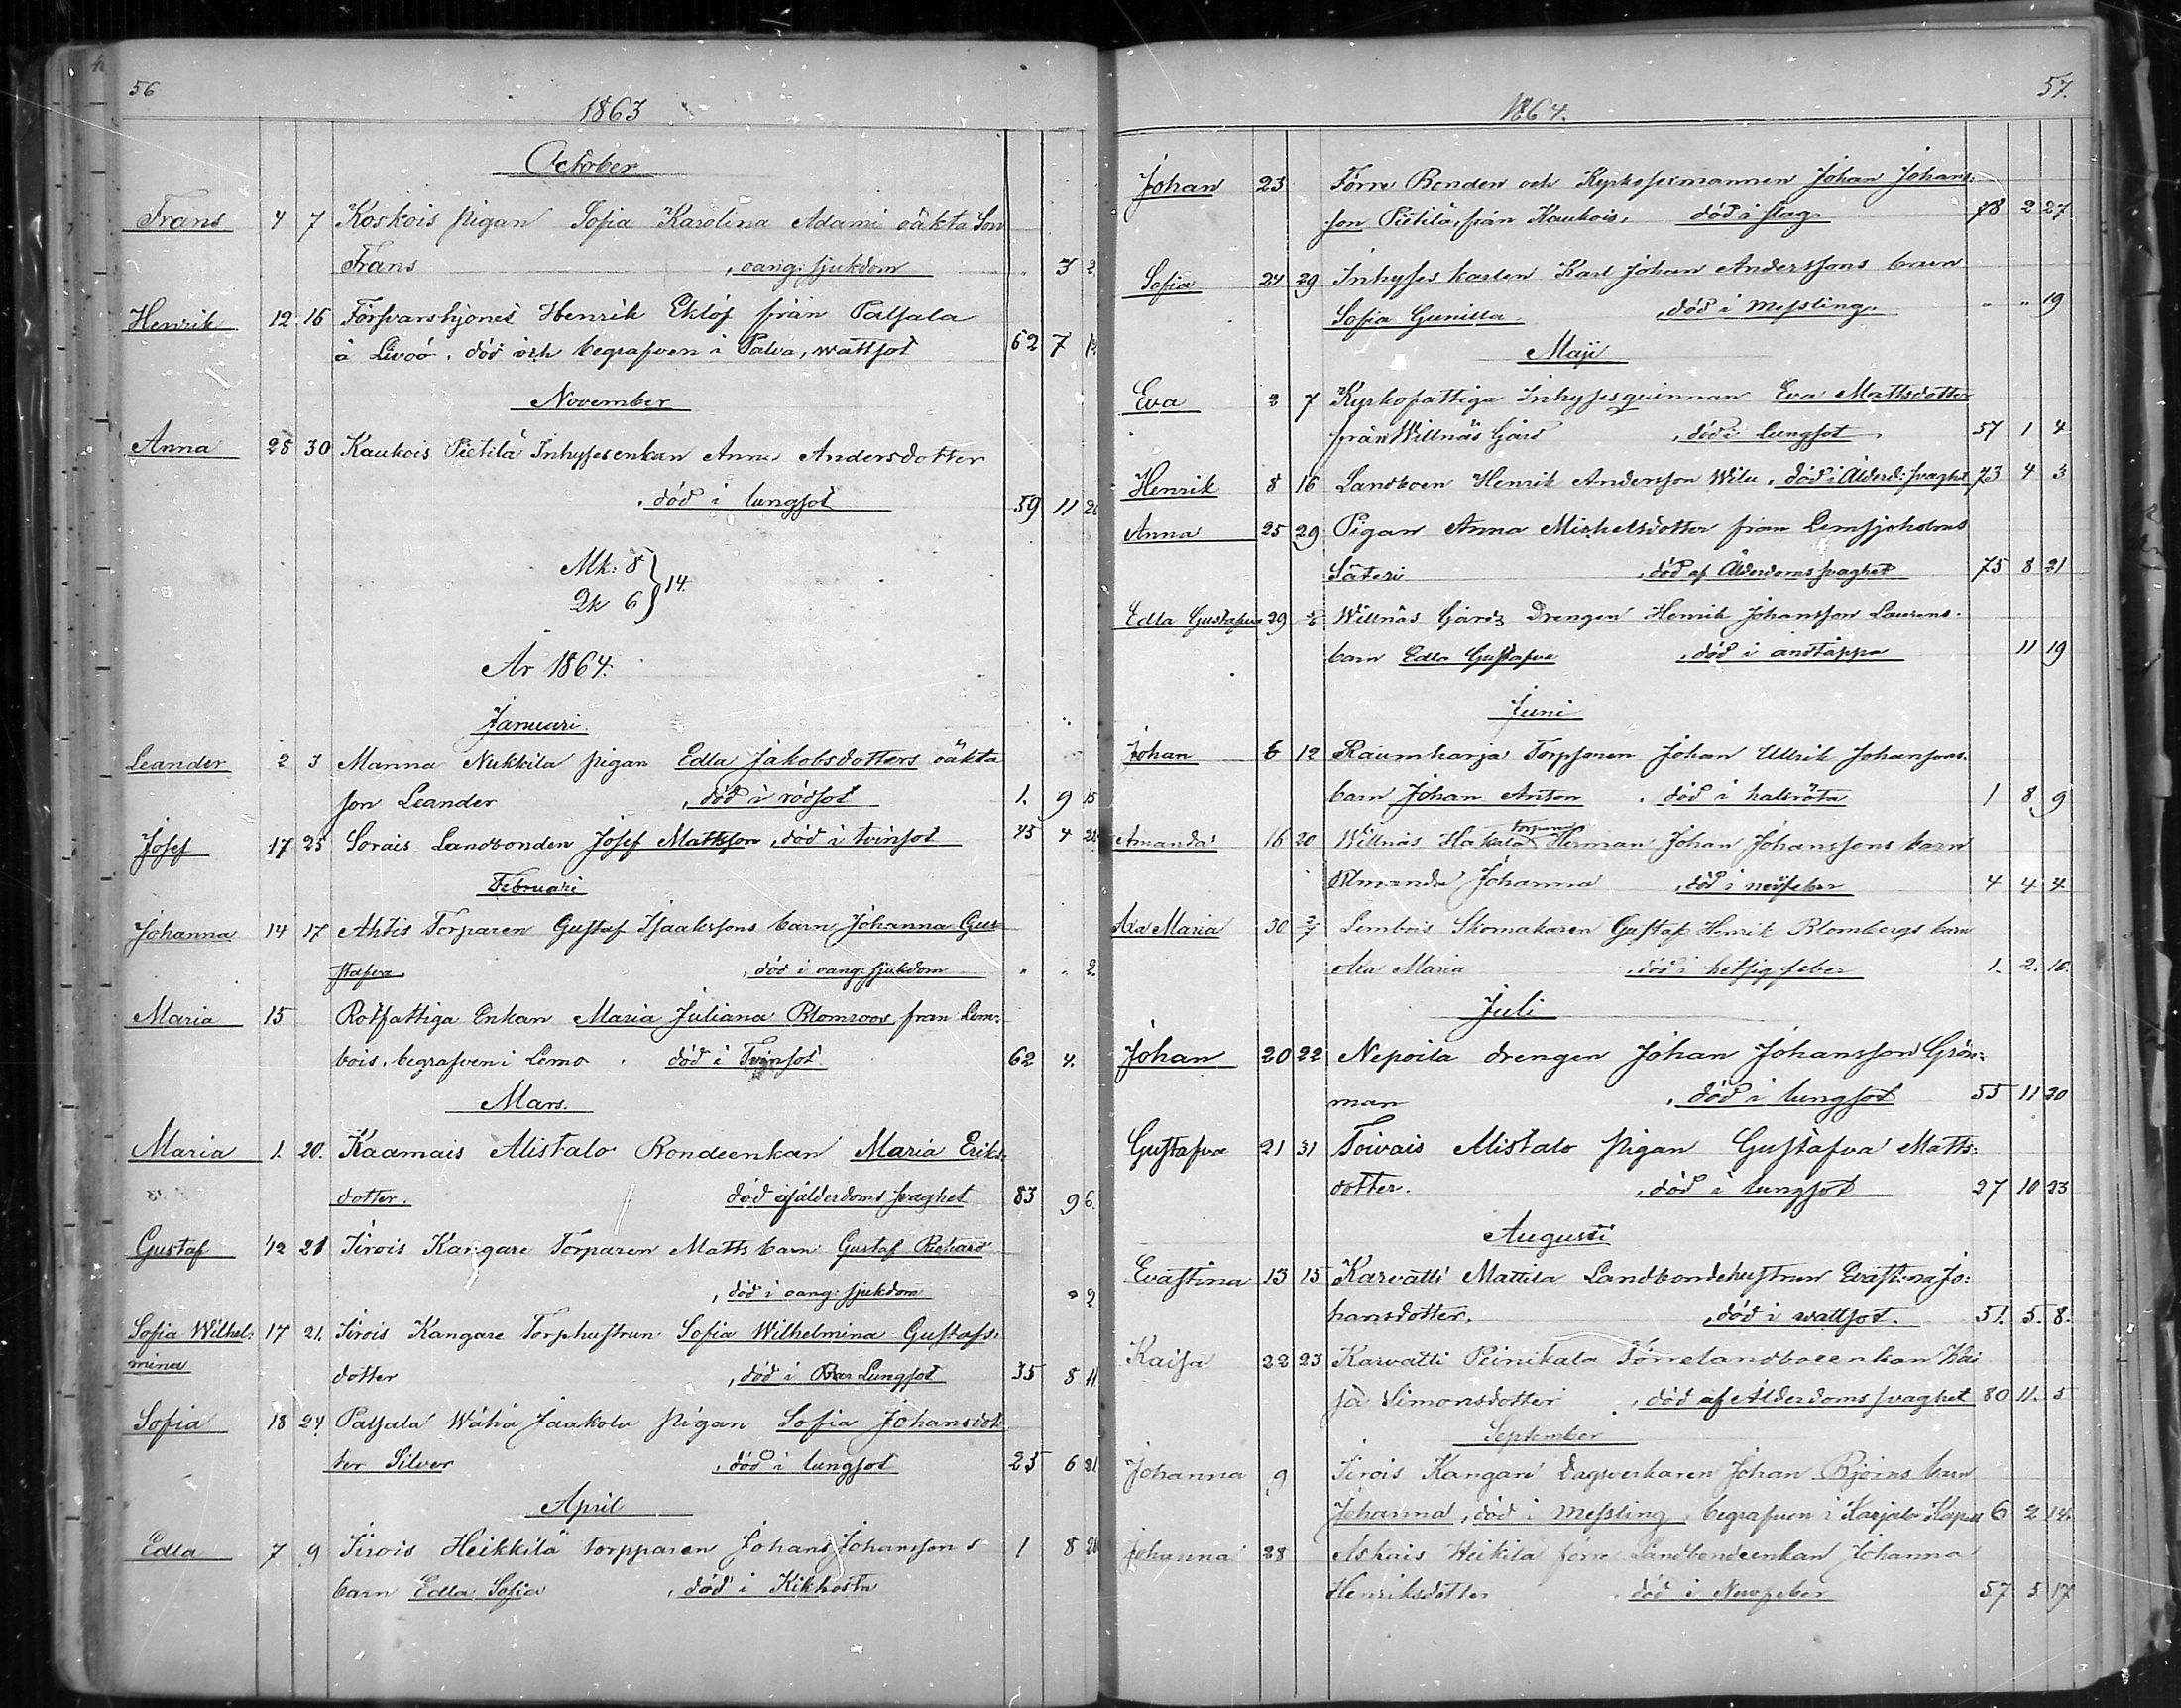 56
1863
October
Frans 4 7 Koskois pigan Sofia Karolina Adami oäkta Son
Frans , oang: sjukdom . 3 2
Henrik 12 16 Försvarshjonet Henrik Eklöf från Palsala
å Livoö. död och begrafven i Palva, wattsot 62 7
November
Anna 25 30 Kaukois Pietilä Inhysesenkan Anna Andersdotter
, död i lungsot 59 11
Mk: 8
Qk 6 } 14.
År 1864.
Januari.
Leander 2 3 Manna Nukkila pigan Edla Jakobsdotters oäkta
son Leander , död i rödsot 1. 9 15
Josef 17 25 Sorais Landbonden Josef Mattsson, död i tvinsot 45 4
Februari
Johanna 14 17 Ahtis Torparen Gustaf Isaakssons barn Johanna Gus-
stafva , död i oang: sjukdom " " 2
Maria 15 Rotfattiga Enkan Maria Juliana Blomroos från Lem-
bois, begrafven i Lemo . död i Tvinsot 62 4.
Mars.
Maria 1. 20. Kaamais Alistalo Bondeenkan Maria Eriks-
dotter. död af ålderdoms svaghet 83 9 6.
Gustaf 12 21 Tirois Kangare Torparen Matts barn Gustaf Richard
, död i oang: sjukdom " 2
Sofia Wilhel- 17 21. Tirois Kangare Torphustrun Sofia Wilhelmina Gustafs-
mina dotter , död i Lungsot 35 8 11.
Sofia 18 24 Palsala Wähä Jaakola pigan Sofia Johansdot-
ter Silver , död i lungsot 25 6 21
April
Edla 7 9 Tirois Heikkilä torpparen Johans Johanssons 1 8
barn Edla Sofia , död i Kikhosta
57.
1864.
Johan 23 Förre Bonden och Kyrkosexmannen Johan Johans-
son Pietilä, från Kaukois, död i slag 78 2 27
Sofia 24 29 Inhyses karlen Karl Johan Anderssons barn
Sofia Gunilla , död i messling. " " 19
Maji
Eva 2 7 Kyrkofattiga Inhysesquinnan Eva Mattsdotter
från Willnäs Gård , död i lungsot 57 1 4
Henrik 8 16 Landboen Henrik Andersson Wilu, död i Ålderd: svaghet 73 4 3
Anna 25 29 Pigan Anna Michelsdotter från Lemsjoholms
Säteri , död af Ålderdoms svaghet 75 8 21
Edla Gustafva 29 Willnäs Gårds Drengen Henrik Johansson Laurens.
barn Edla Gustafva , död i andtäppa 11 19
Juni
Johan 6 12 Raumkarja Torpsonen Johan Ullrik Johanssons.
barn Johan Anton . död i halsröta 1 8 9
Amanda 16 20 Willnäs Hakala torparen Herman Johan Johanssons barn
Amanda Johanna , död i nerffeber 4 4 4
Ida Maria 30 2/7 Lembois Skomakaren Gustaf Henrik Blombergs barn
Ida Maria , död i hetsig feber 1. 2. 10.
Juli
Johan 20 22 Nepoila drengen Johan Johansson Grön-
man , död i lungsot 55 11 20
Gustafva 21 31 Toivais Alistalo pigan Gustafva Matts-
dotter. , död i lungsot 27 10 23
Augusti
Evastina 13 15 Karvatti Mattila Landbondehustrun Evastina Jo-
hansdotter. , död i wattsot. 51. 5. 8.
Kaisa 22 23 Karvatti Peinikala Förrelandboenkan Kai
sa Simonsdotter , död af Ålderdoms svaghet 80 11. 5
September
Johanna 9 Tirois Kangari Dagsverkaren Johan Björns barn
Johanna, död i messling, begrafven i Karjala Kapell 6 2 14.
Johanna 28 Askais Heikila förre Landbondeenkan Johanna
Henriksdotter . död i Nervfeber 57 5 17